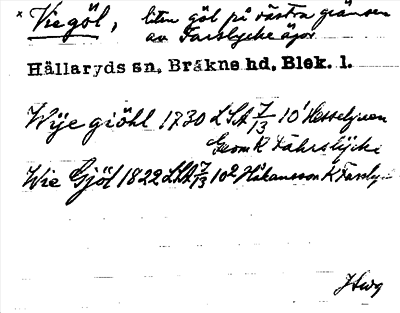 * Viegöl, liten göl på västra gränsen
av Farslycke ägor.
Hällaryds sn, Bräkne hd, Blek. l.
Wije giöhl 1730 LSA 7/13 10¹ Hesselgreen
Geom K Fährslÿcke
Wie Gjöl 1822 LSA 7/13 10² Håkansson K Farsly